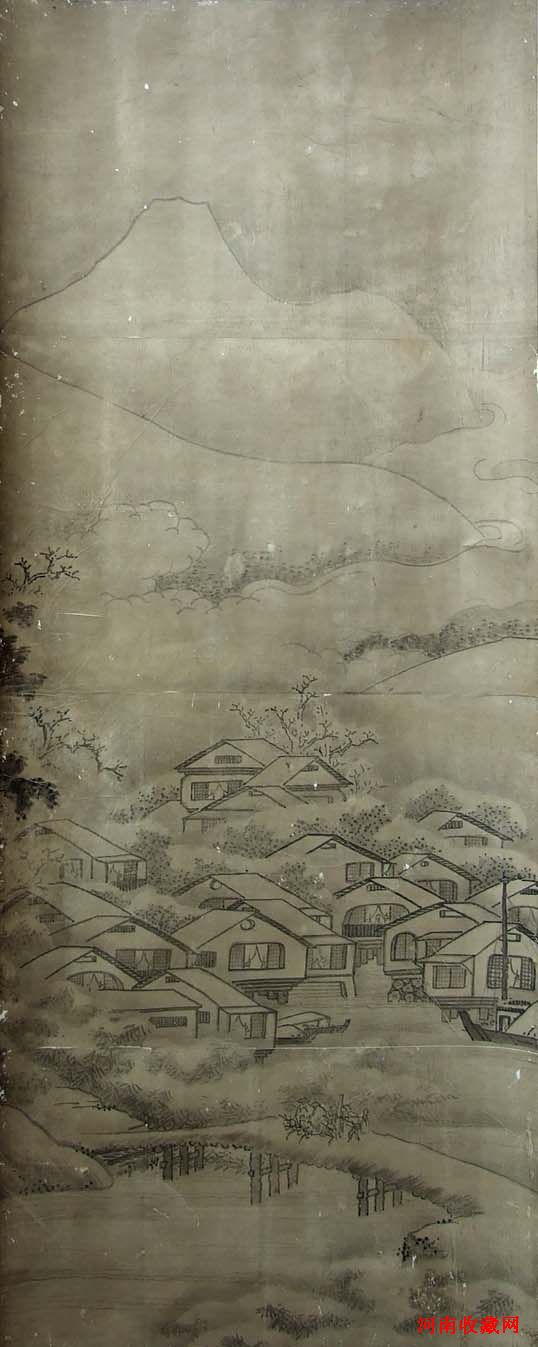 河南收藏网